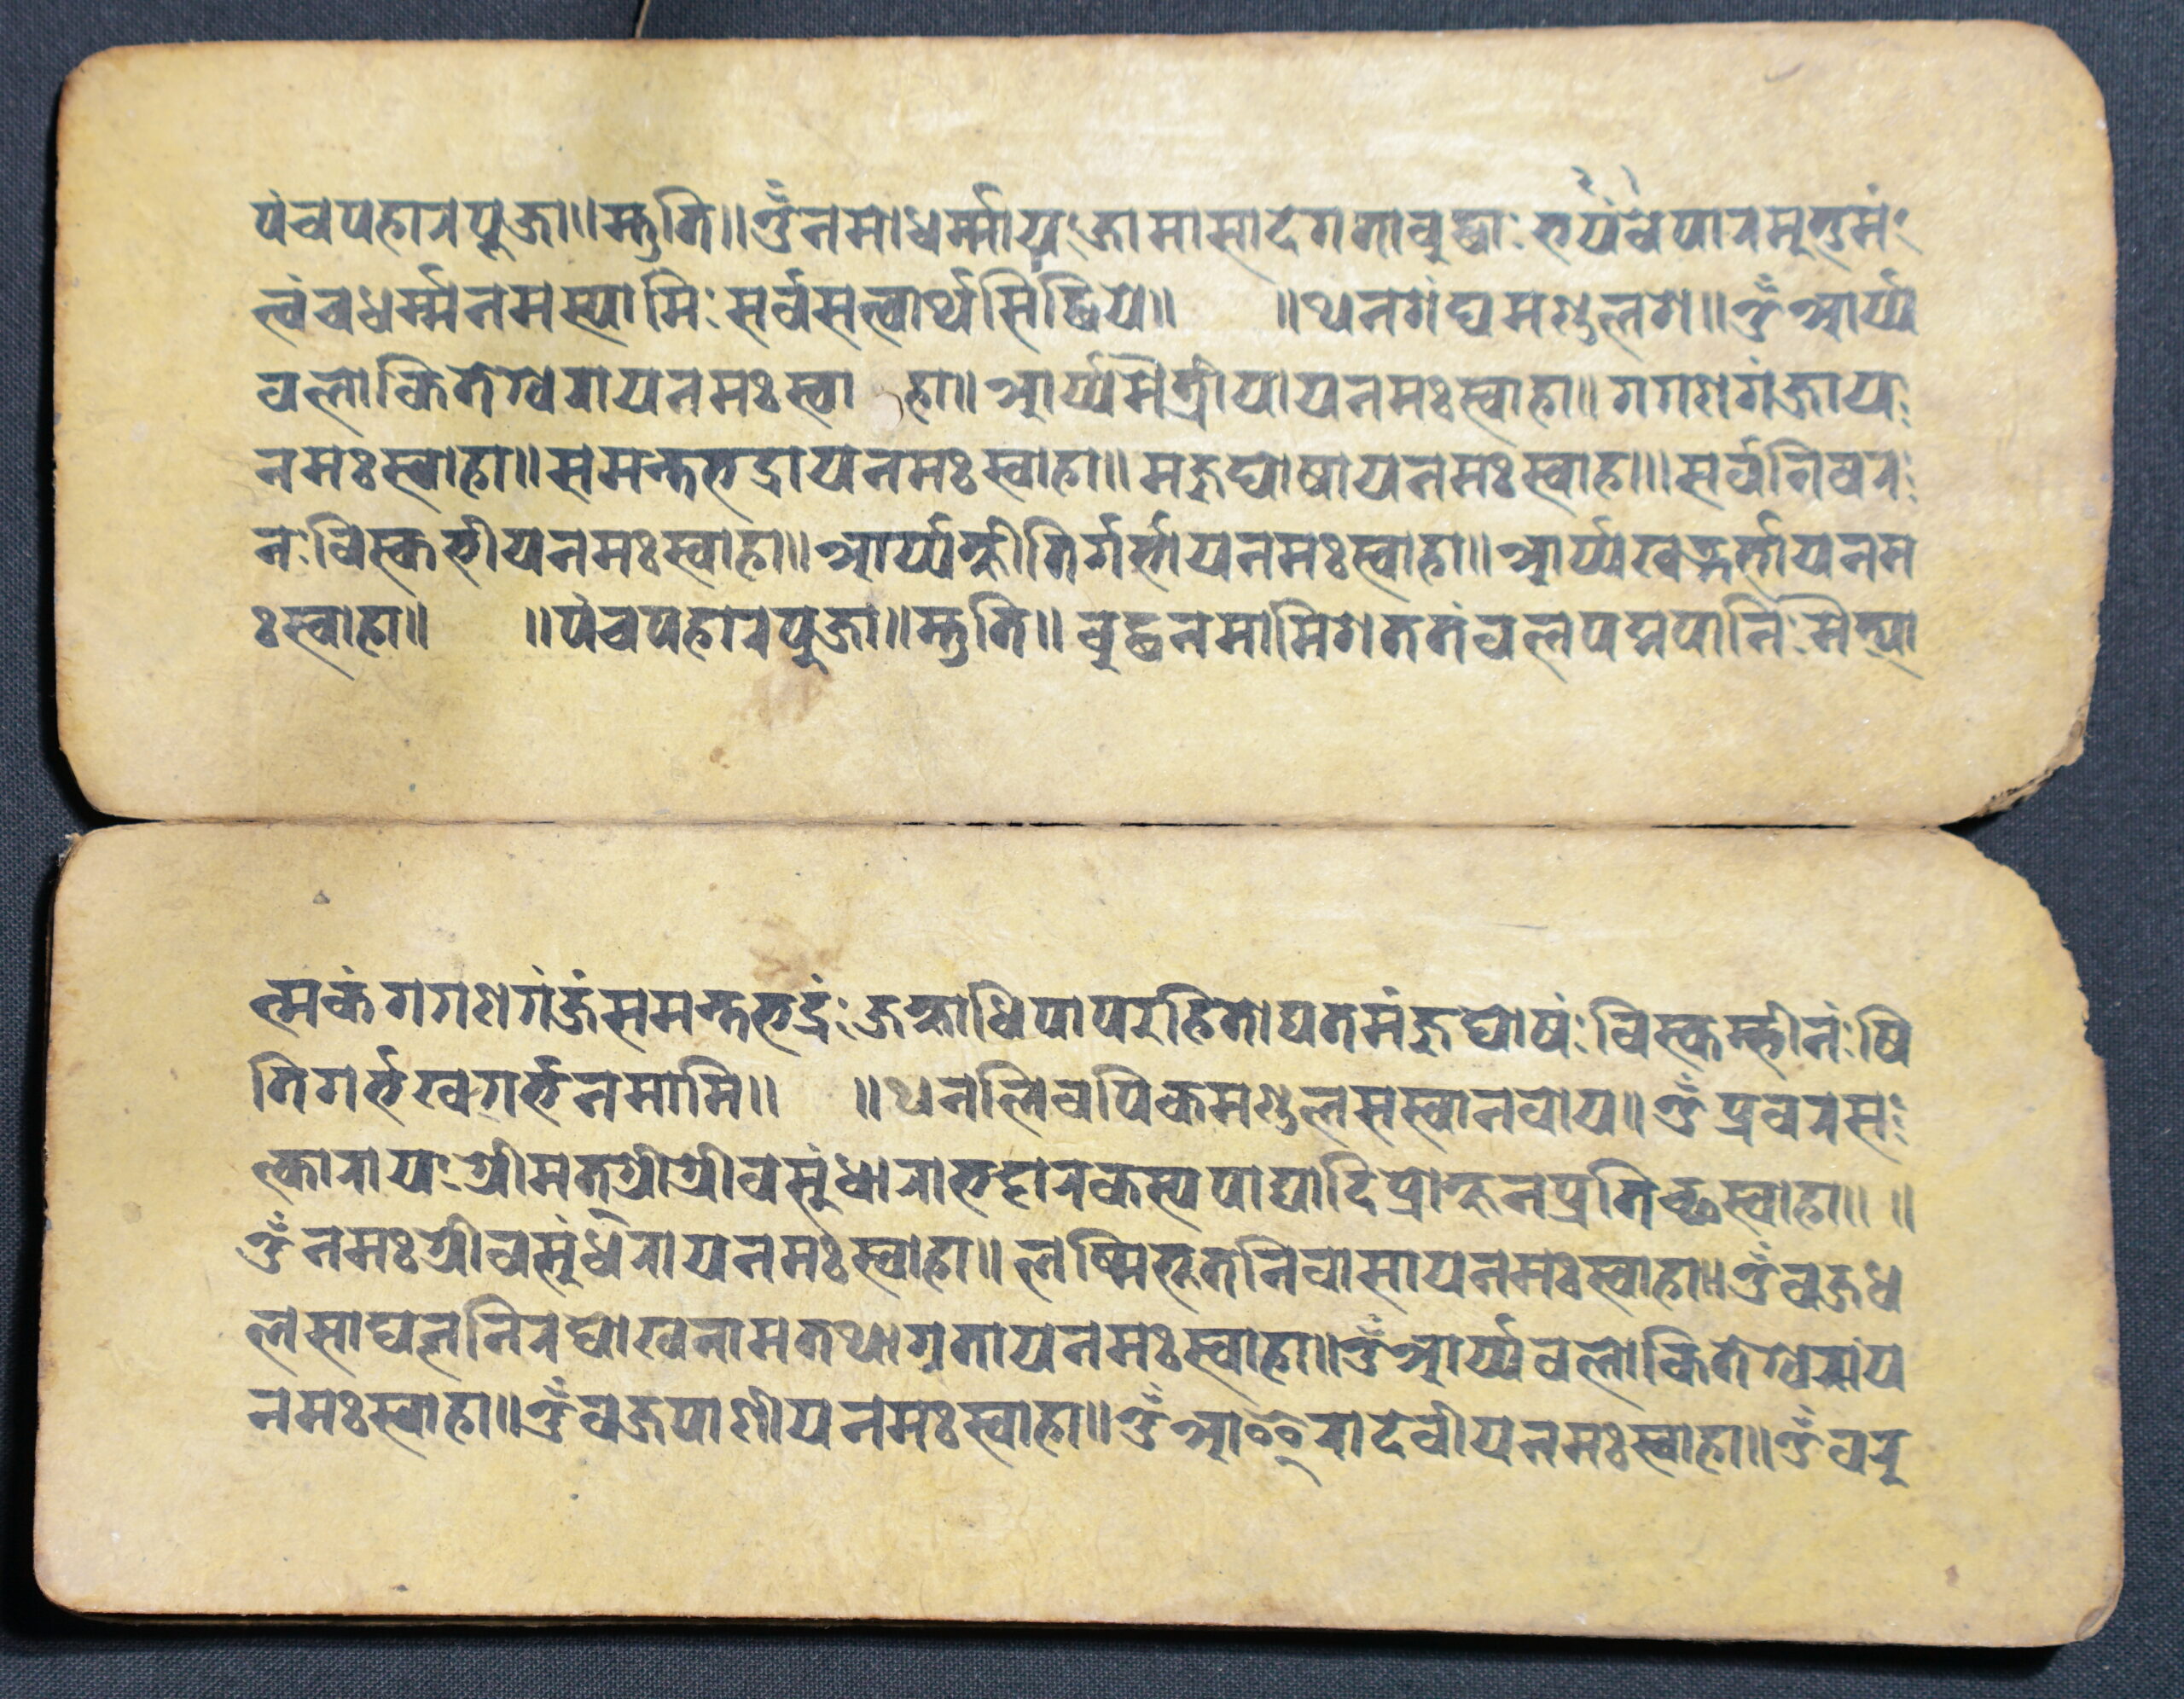 पंचपहारपूजा॥स्तुति॥ॐनमोधर्म्माय:जामासादेगतावुद्धा:भयंवेपारमुत्तुमं:
त्वंचधर्म्मनमस्यामि:सर्वसत्वार्थसिद्धिये॥ ॥थनशंघमण्डुलशे॥ॐआर्य्या
वलोकितेश्वेरायनमःस्वाहा॥आर्य्यमैत्रीयायनमःस्वाहा॥गगणगंजाय:
नमःस्वाहा॥समन्तभद्रायनमःस्वाहा॥मजुघोषायनमःस्वाहा॥सर्वनिवर:
न:विस्कभीयनमःस्वाहा॥आर्य्यक्षीतिर्गर्भायनमःस्वाहा॥आर्य्यखर्गर्भायनम
ःस्वाहा॥ ॥पंचपहारपूजा॥स्तुति॥वुद्धनमामिशततंवलपद्मपानि:मैत्र्या
त्मकंगगणगंजंसमन्तभद्रं:जक्षाधिपापरहितोद्यतमंजुघोषं:विस्कम्भीनं:षि
तिगर्भखगर्भनमामि॥ ॥थनलिवपिकमण्डुलसस्वानवोय॥ॐप्रवरस:
त्कारायःश्रीमत्श्रीश्रीवसुंधाराभट्टारकस्यपाद्यादिप्रोक्षनप्रतिच्छस्वाहा॥ ॥
ॐनमःश्रीवसुंधरायनमःस्वाहा॥लष्मिभूतनिवासायनमःस्वाहा॥ॐवज्रध
लसाघलनिरघोखनामतथागतायनमःस्वाहा॥ॐआर्य्यवलोकितेश्वेरायं
नमःस्वाहा॥ॐवज्रपाणीयनमःस्वाहा॥ॐआर्यतारादेवीयनमःस्वाहा॥ॐवरु